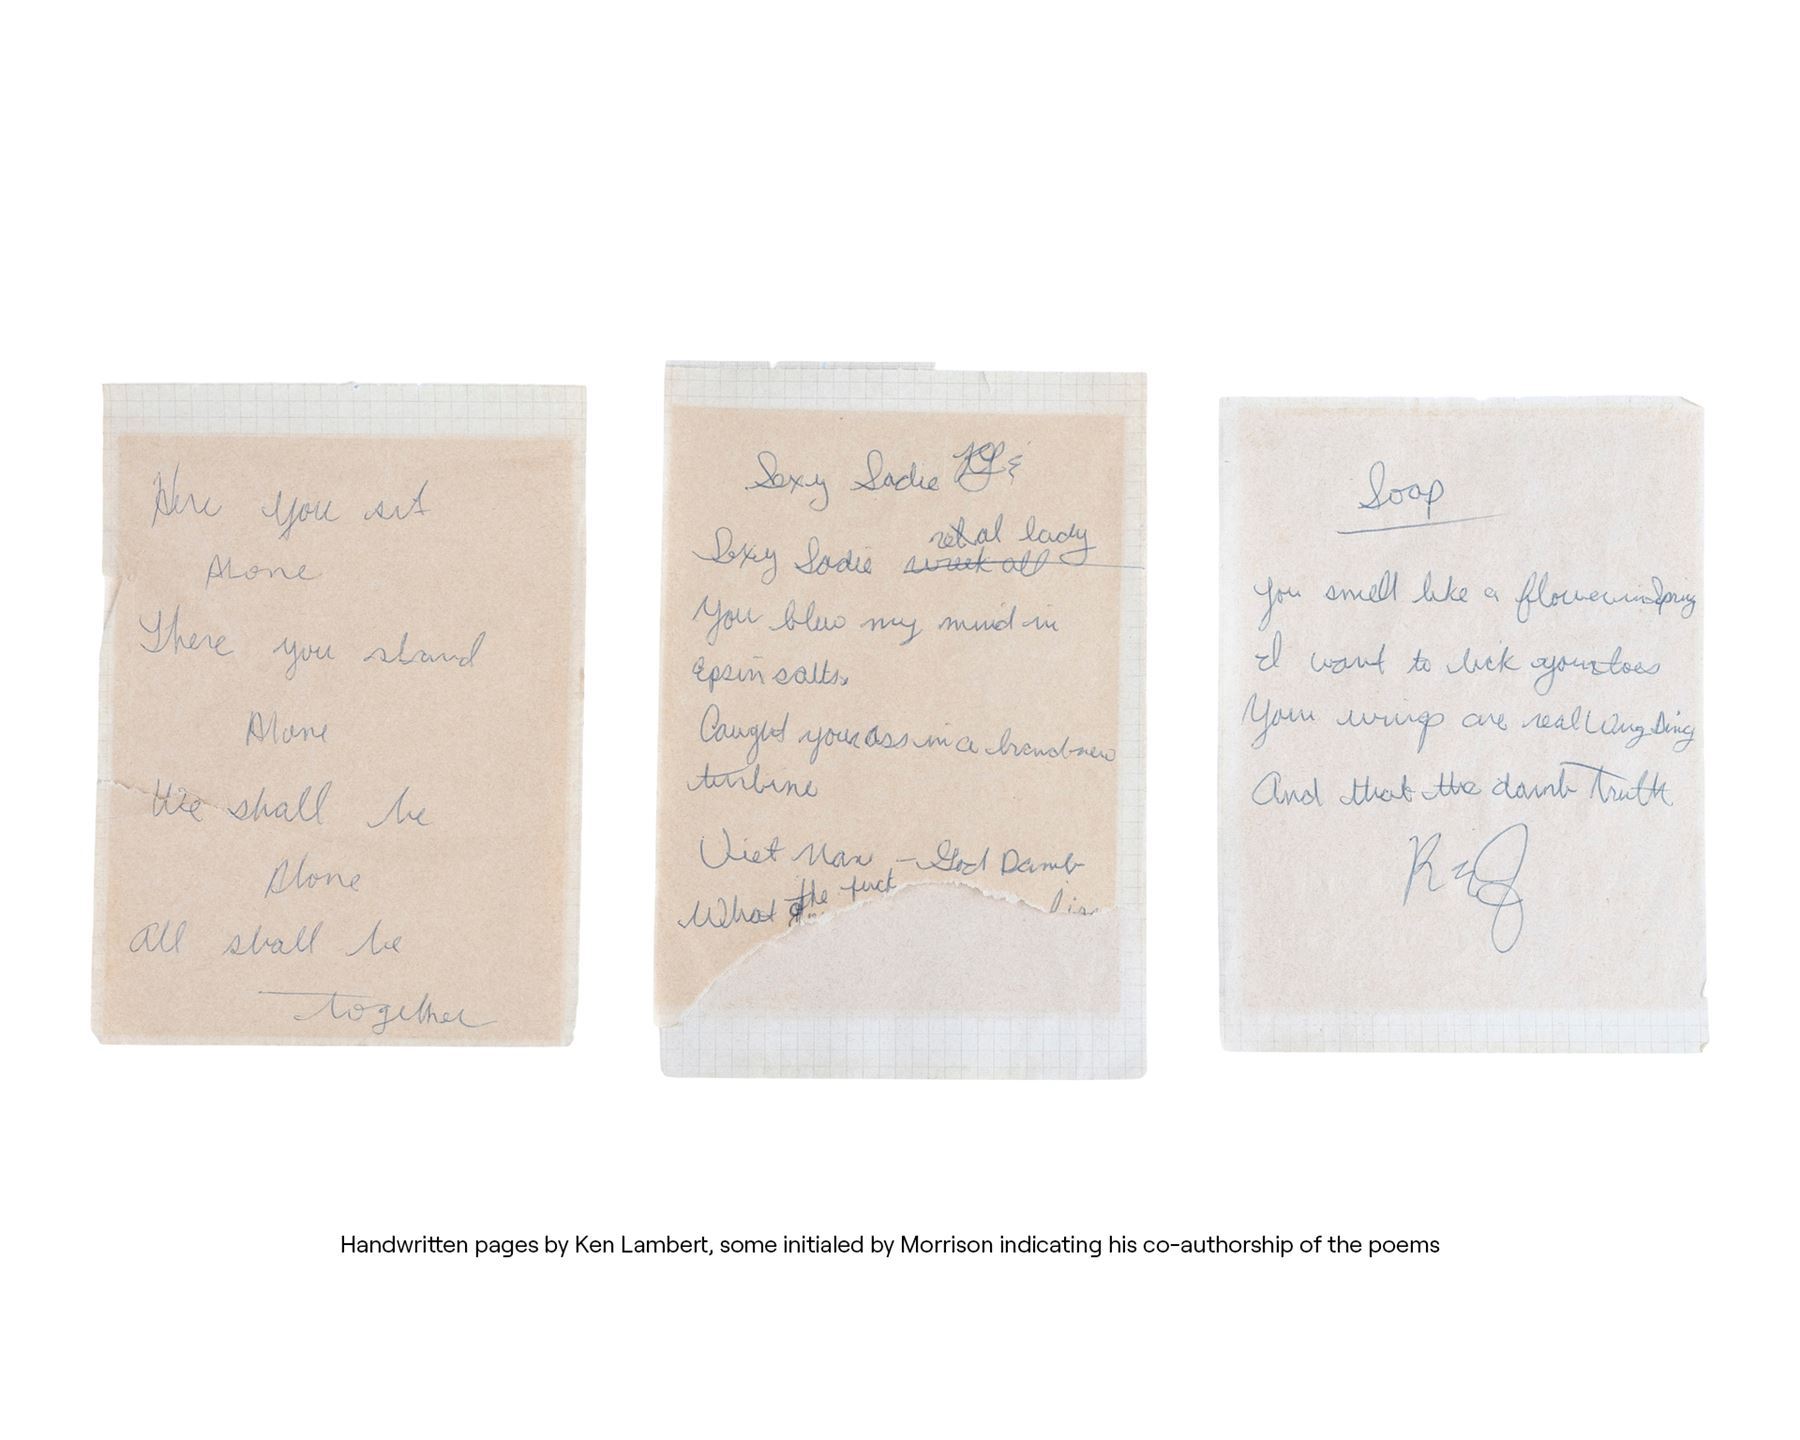 Here you sit
Alone
There you stand
Alone
We shall be
Alone
All shall be
together
Sexy Sadie
lady
Sexy Sadie
You blew my mind in
Epsin salts.
Caught your ass in a brand new
turbine
Viet Nam - God Damb
the fuck
What
Soap
You smell like a flower in Spring
I want to lick your toes
Your wings are real Wing Ding
And that the damb Truth
Handwritten pages by Ken Lambert, some initialed by Morrison indicating his co-authorship of the poems